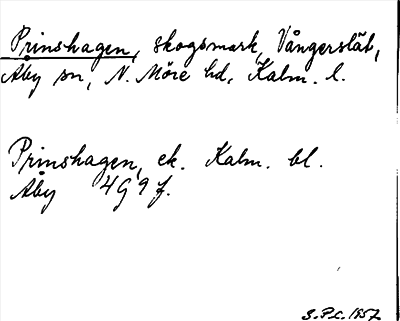 Prinshagen, skogsmark, Vångerslät,
Åby sn, N. Möre hd, Kalm. l.
Prinshagen, ek. Kalm. bl.
Åby 4G 9f.